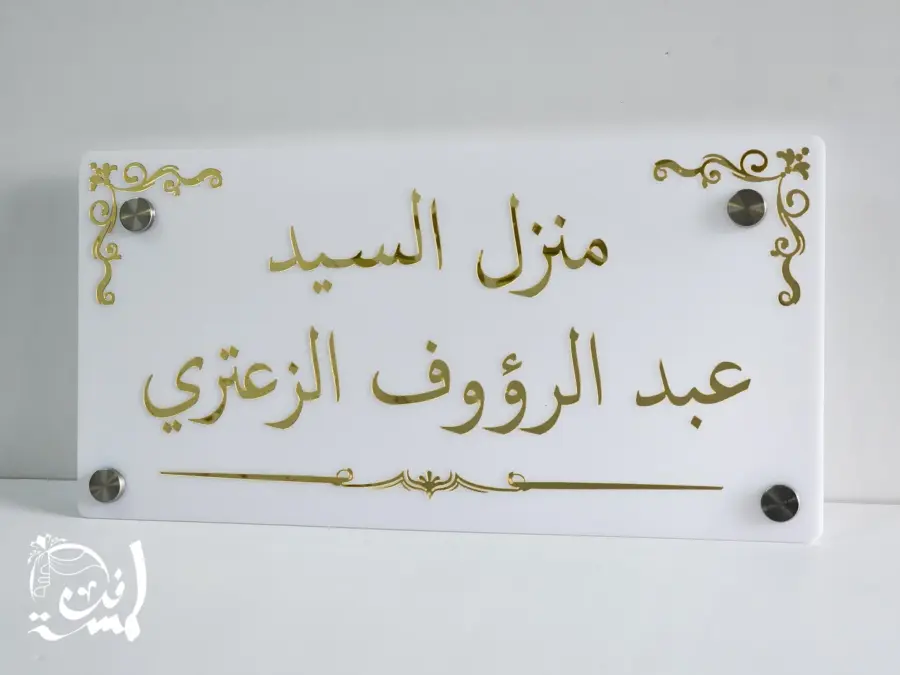 منزل السيد
عبد الرؤوف الزعتري
لمسة فن